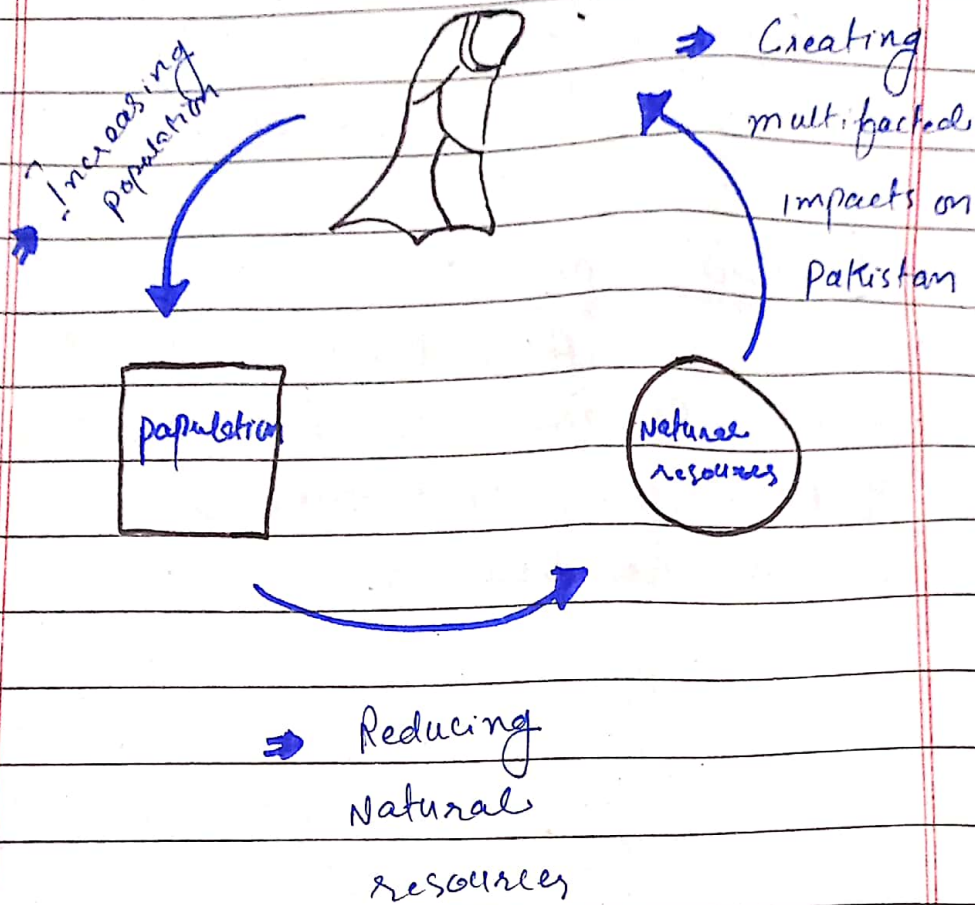 Increasing
population
Creating
multifacted
impacts on
Pakistan
papulation
Natural
resources
Reducing
Natural
resources